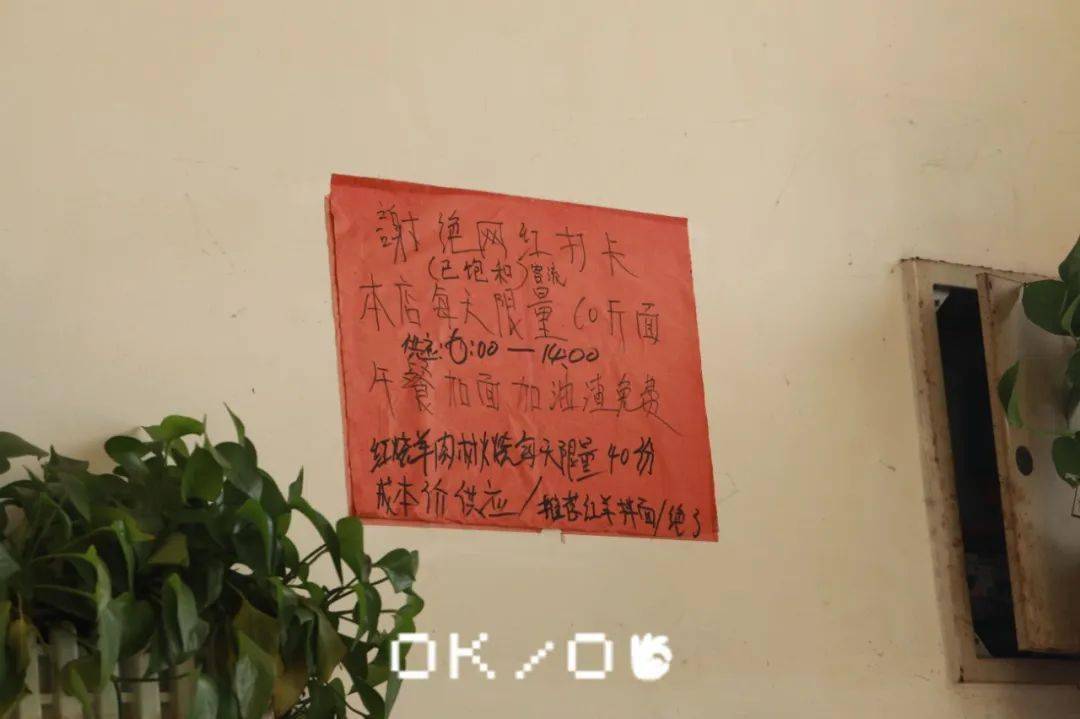 謝绝网红打卡
(已饱和)客流
本店每天限量60斤面
供应:6:00—14:00
午餐加面加油渣免费
红烧羊肉 每天限量40份
成本价供应/推荐红羊拌面/绝了
OK/O